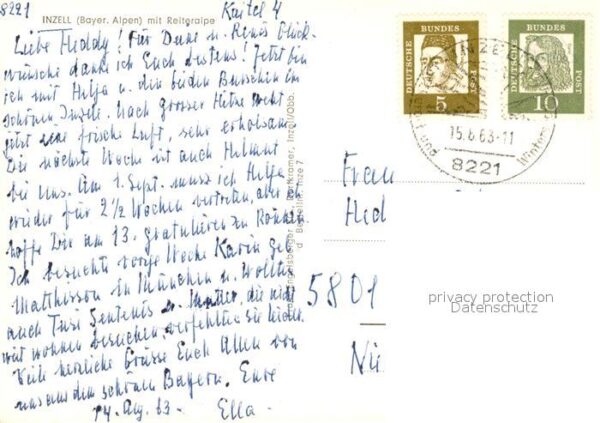 8221
Kaitel 4
INZELL (Bayer. Alpen) mit Reitgraipe
Liebe Heddy! Für Deine u. Renés Glück-
wünsche danke ich Euch bestens! Jetzt bin
ich mit Helga u. den beiden Burschen im
schönen Inzell. Nach grosser Hitze weht
jetzt eine frische Luft, sehr erholsam.
Die nächste Woche ist auch Helmut
bei uns. Am 1. Sept. muss ich Helga
wieder für 2 1/2 Wochen vertreten, aber ich
hoffe Dir am 13. gratulieren zu können
Ich besuchte vorige Woche Karin geb.
Matthisson in München u. wollte
auch Tusi Sentenis u. Mutter, die nicht
weit wohnen besuchen, verfehlten sie leider.
Viele herzliche Grüsse Euch Allen von
uns aus dem schönen Bayern. Eure
14. Aug. 63. Ella.
DEUTSCHE BUNDES POST
5
DEUTSCHE BUNDES POST
10
INZELL
15.8.63-11
8221
und Winter
Inzell/Obb.
Frau
Hed
5801
privacy protection
Datenschutz